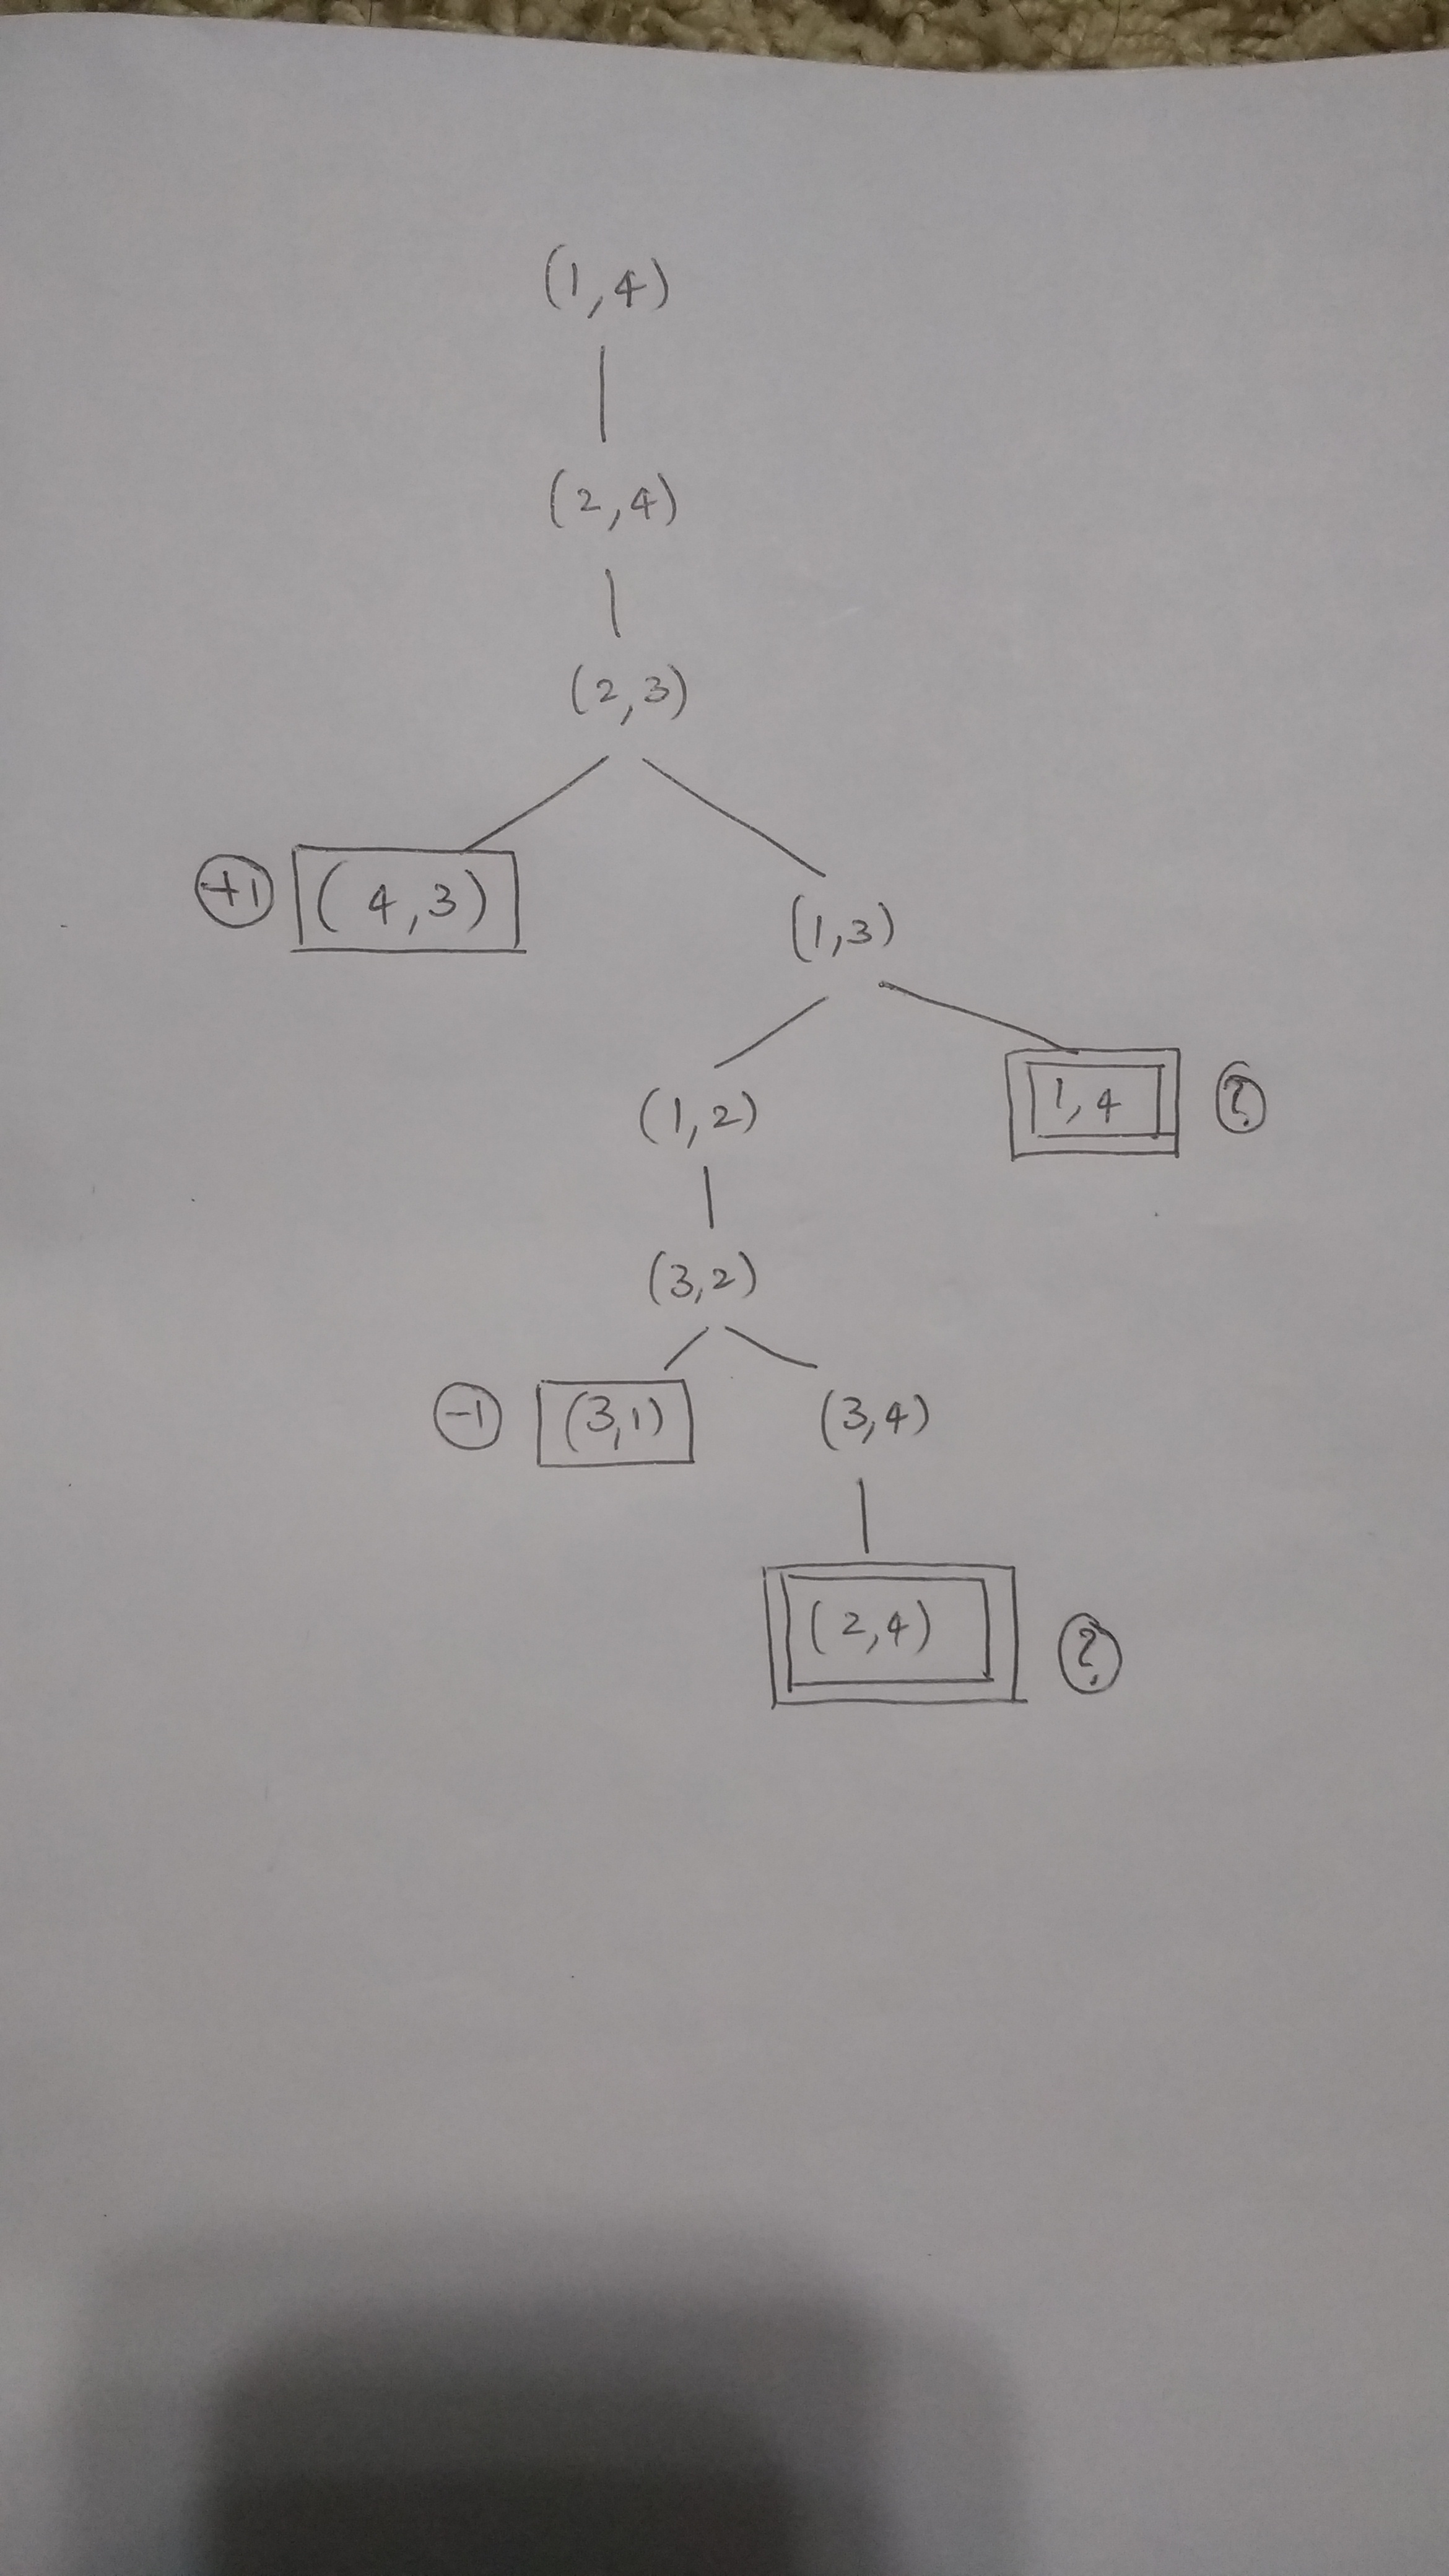 (1,4)
(2,4)
(2,3)
+1 (4,3)
(1,3)
(1,2)
1,4 ?
(3,2)
-1 (3,1) (3,4)
(2,4) ?